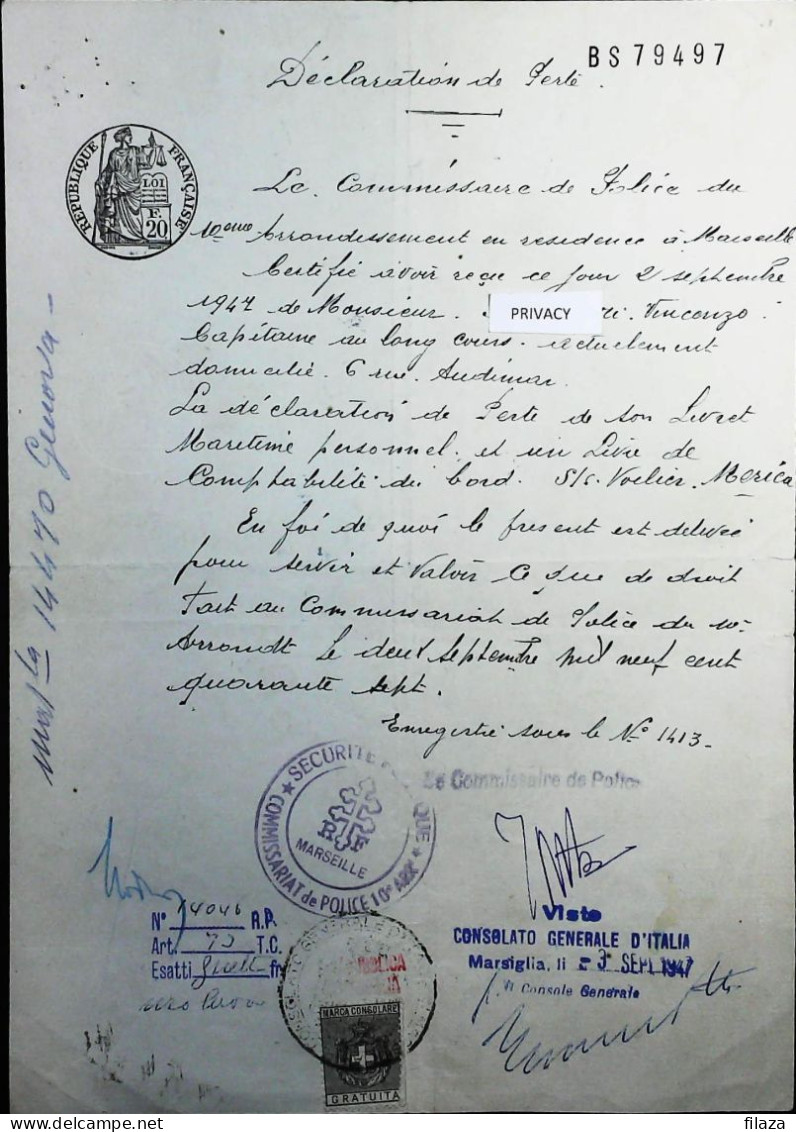 BS79497
Déclaration de Perte.
RÉPUBLIQUE FRANÇAISE
LOI
F.
20
Le Commissaire de Police du
10eme Arrondissement en residence à Marseille
Certifie avoir reçu ce jour 2 septembre
1947 de Monsieur. PRIVACY Vincenzo.
Capitaine au long cours. actuelement
domicilié. 6 rue. Audimar.
La déclaration de Perte de son Livret
Maretime personnel. et un Livre de
Comptabilité du bord. S/c. Voilier. Merica
En foi de quoi le present est delivré
pour servir et Valoir Ce que de droit
Fait au Commissariat de Police du 10e
Arrondt Le deux Septembre Mil neuf cent
quarante sept.
Enregistré sous le No 1413.
14470 Genova
Le Commissaire de Police
SECURITE
COMMISSARIAT de POLICE 10e ARRt
R F
MARSEILLE
N° 14046 R.P.
Art. 73 T.C.
Esatti fr
Visto
CONSOLATO GENERALE D'ITALIA
Marsiglia, li - 3 SETT. 1947
p. Il Console Generale
MARCA CONSOLARE
GRATUITA
filaza